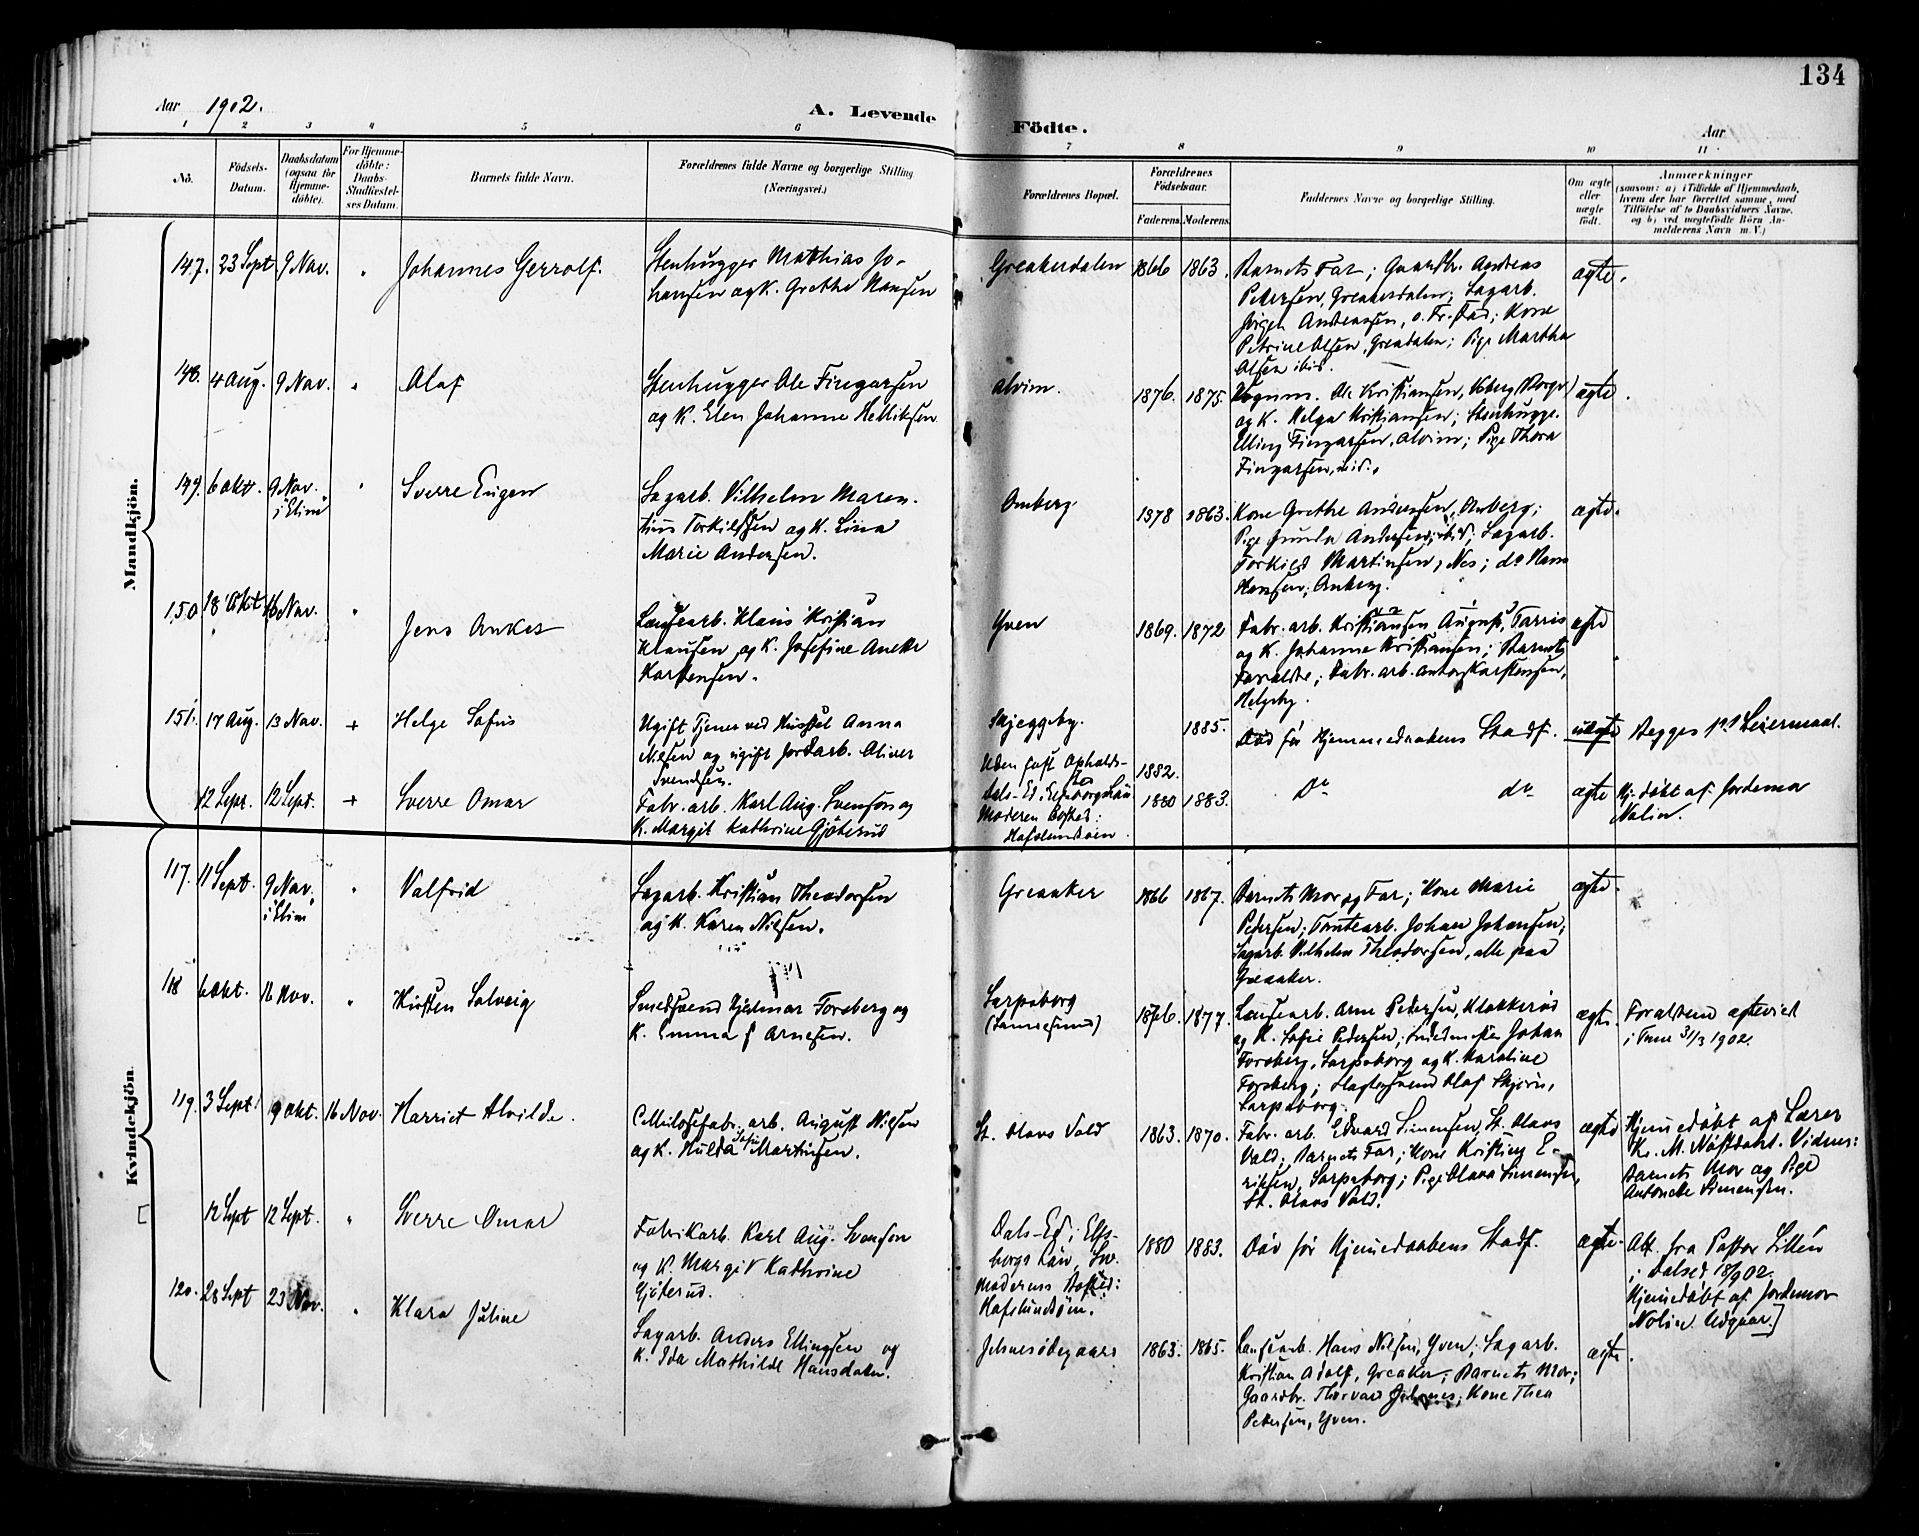 134
Aar 1902. A. Levende Födte. Aar
1 2 3 4 5 6 7 8 9 10 11
No. Födsels-Datum. Daabsdatum (ogsaa for Hjemmedöbte). For Hjemmedöbte: Daabs-Stadfæstelses Datum. Barnets fulde Navn. Forældrenes fulde Navne og borgerlige Stilling (Næringsvei.) Forældrenes Bopæl. Forældrenes Födselsaar. Faderens. Moderens. Faddernes Navne og borgerlige Stilling. Om ægte eller uægte födt. Anmærkninger (saasom: a) i Tilfælde af Hjemmedaab, hvem der har forrettet samme, med Tilföielse af to Daabsvidners Navne. og b) ved uægtefödte Börn Anmelderens Navn m. V.)
Mandkjön.
147. 23 Sept 9 Nav. " Johannes Gerrolf. Stenhugger Mathias Jo-
hansen og K. Grethe Hansen
Greakerdalen 1866 1863. Barnets Far; Gaardbr. Andreas
Petersen, Greakerdalen; Sagarb.
Jörgen Andreassen, o. Fr.stad; Kone
Petrine Olsen, Greadalen; Pige Martha
Olsen ibid. ægte.
148. 4 Aug. 9 Nav. " Olaf Stenhugger Ole Fingarsen
og K. Elen Johanne Hellitsen
Alvim. 1876. 1875. Vognm. Ole Kristiansen, Isberg (Borge)
og K. Helga Kristiansen; Stenhugge.
Elling Fingarsen, Alvim; Pige Thora
Fingarsen, ibid. ægte.
149. 6 Okt. 9 Nav. i "Elim" " Sverre Eugen Sagarb. Vilhelm Maren-
tius Torkildsen og K. Lina
Marie Andersen.
Omberg. 1878 1863. Kone Grethe Andersen, Omberg;
Pige Gunda Andersen, ibid; Sagarb.
Torkild Martinsen, Nes; do Hans
Hansen, Omberg. ægte.
150 18 Okt. 16 Nav. " Jens Ankes Landsearb. Klaus Kristian
Klausen og K. Josefine Aneke
Karstensen.
Yven 1869. 1872 Fabr. arb. Kristiansen August, Torris
og K. Johanne Kristiansen; Barnets
Forældre; Fabr. arb. Anton Karstensen,
Helgeby. ægte
151. 17 Aug. 13 Nav. + Helge Sofus Ugift Tjener ved Husstel Anna
Nilsen og ugift Jordarb. Oliver
Svendsen.
Skjeggeby.
Uden fast Opholds-
sted 1882. 1885. Död för Hjemmedaabens Stadf. uægte Begges 1ste Leiermaal.
12 Sept. 12 Sept. + Sverre Omar Fabr. arb. Karl Aug. Svenson og
K. Margit Kathrine Gjöterud
Dals-Ed, Elfsborgs Län
Moderen Bosted:
Hafslundsöen. 1880 1883. Do do ægte Hj. döbt af Jordemor
Nolin.
Kvindekjön
117. 11 Sept. 9 Nav. i "Elim" " Valfrid Sagarb. Kristian Theodorsen
og K. Karen Nilsen.
Greaaker 1866 1867. Barnets Mor og Far; Kone Marie
Pedersen; Tomtearb. Johan Johansen;
Sagarb. Vilhelm Theodorsen, alle paa
Greaaker. ægte.
118 6 Okt. 16 Nov. " Kirsten Solveig Smedsvend Hjalmar Forsberg og
K. Emma f Arnesen.
Sarpsborg
(Sannesund) 1876. 1877. Landsearb. Arne Pedersen, Klokkeröd
og K. Sofie Pedersen; Smedmester Johan
Forsberg, Sarpsborg og K. Karoline
Forsberg; Slagtersvend Olaf Skjörn,
Sarpsborg. ægte. Forældrene ægteviet
i Tune 31/3 1902.
119. 3 Sept. 19 Okt. 16 Nov. Harriet Alvilde. Cellulosefabr. arb. August Nilsen
og K. Hulda Sofie Martinsen.
St. Olavs Vold 1863. 1870. Fabr. arb. Edvard Simensen, St. Olavs
Vold. Barnets Far; Kone Kristine E-
riksen, Sarpsborg; Pige Olava Simensen,
St. Olavs Vold. ægte Hjemmedöbt af Lærer
Kr. M. Nöstdahl. Vidner:
Barnets Mor og Pige
Antonette Simensen.
[ 12 Sept 12 Sept. " Sverre Omar Fabrikarb. Karl Aug. Svenson
og K. Margit Kathrine
Gjöterud.
Dals-Ed i Elfs-
borgs Län, Sv.
Moderens Bosted:
Hafslundsöen. 1880 1883. Död för Hjemmedaabens Stadf. ægte. Att. fra Pastor Lillén
i Dalsed 18/9 02.
Hjemmedöbt af Jordemor
Nolin Udgaar.]
120. 28 Sept 23 Nov. " Klara Juline Sagarb. Anders Ellingsen og
K. Ida Mathilde Hansdatter.
Jelsnesödegaard 1863. 1865. Landsearb. Hans Nilsen, Yven; Sagarb.
Kristian Adolf, Greaker; Barnets Mor;
Gaardbr. Thorvard Jelsnes; Kone Thea
Petersen, Yven. ægte.